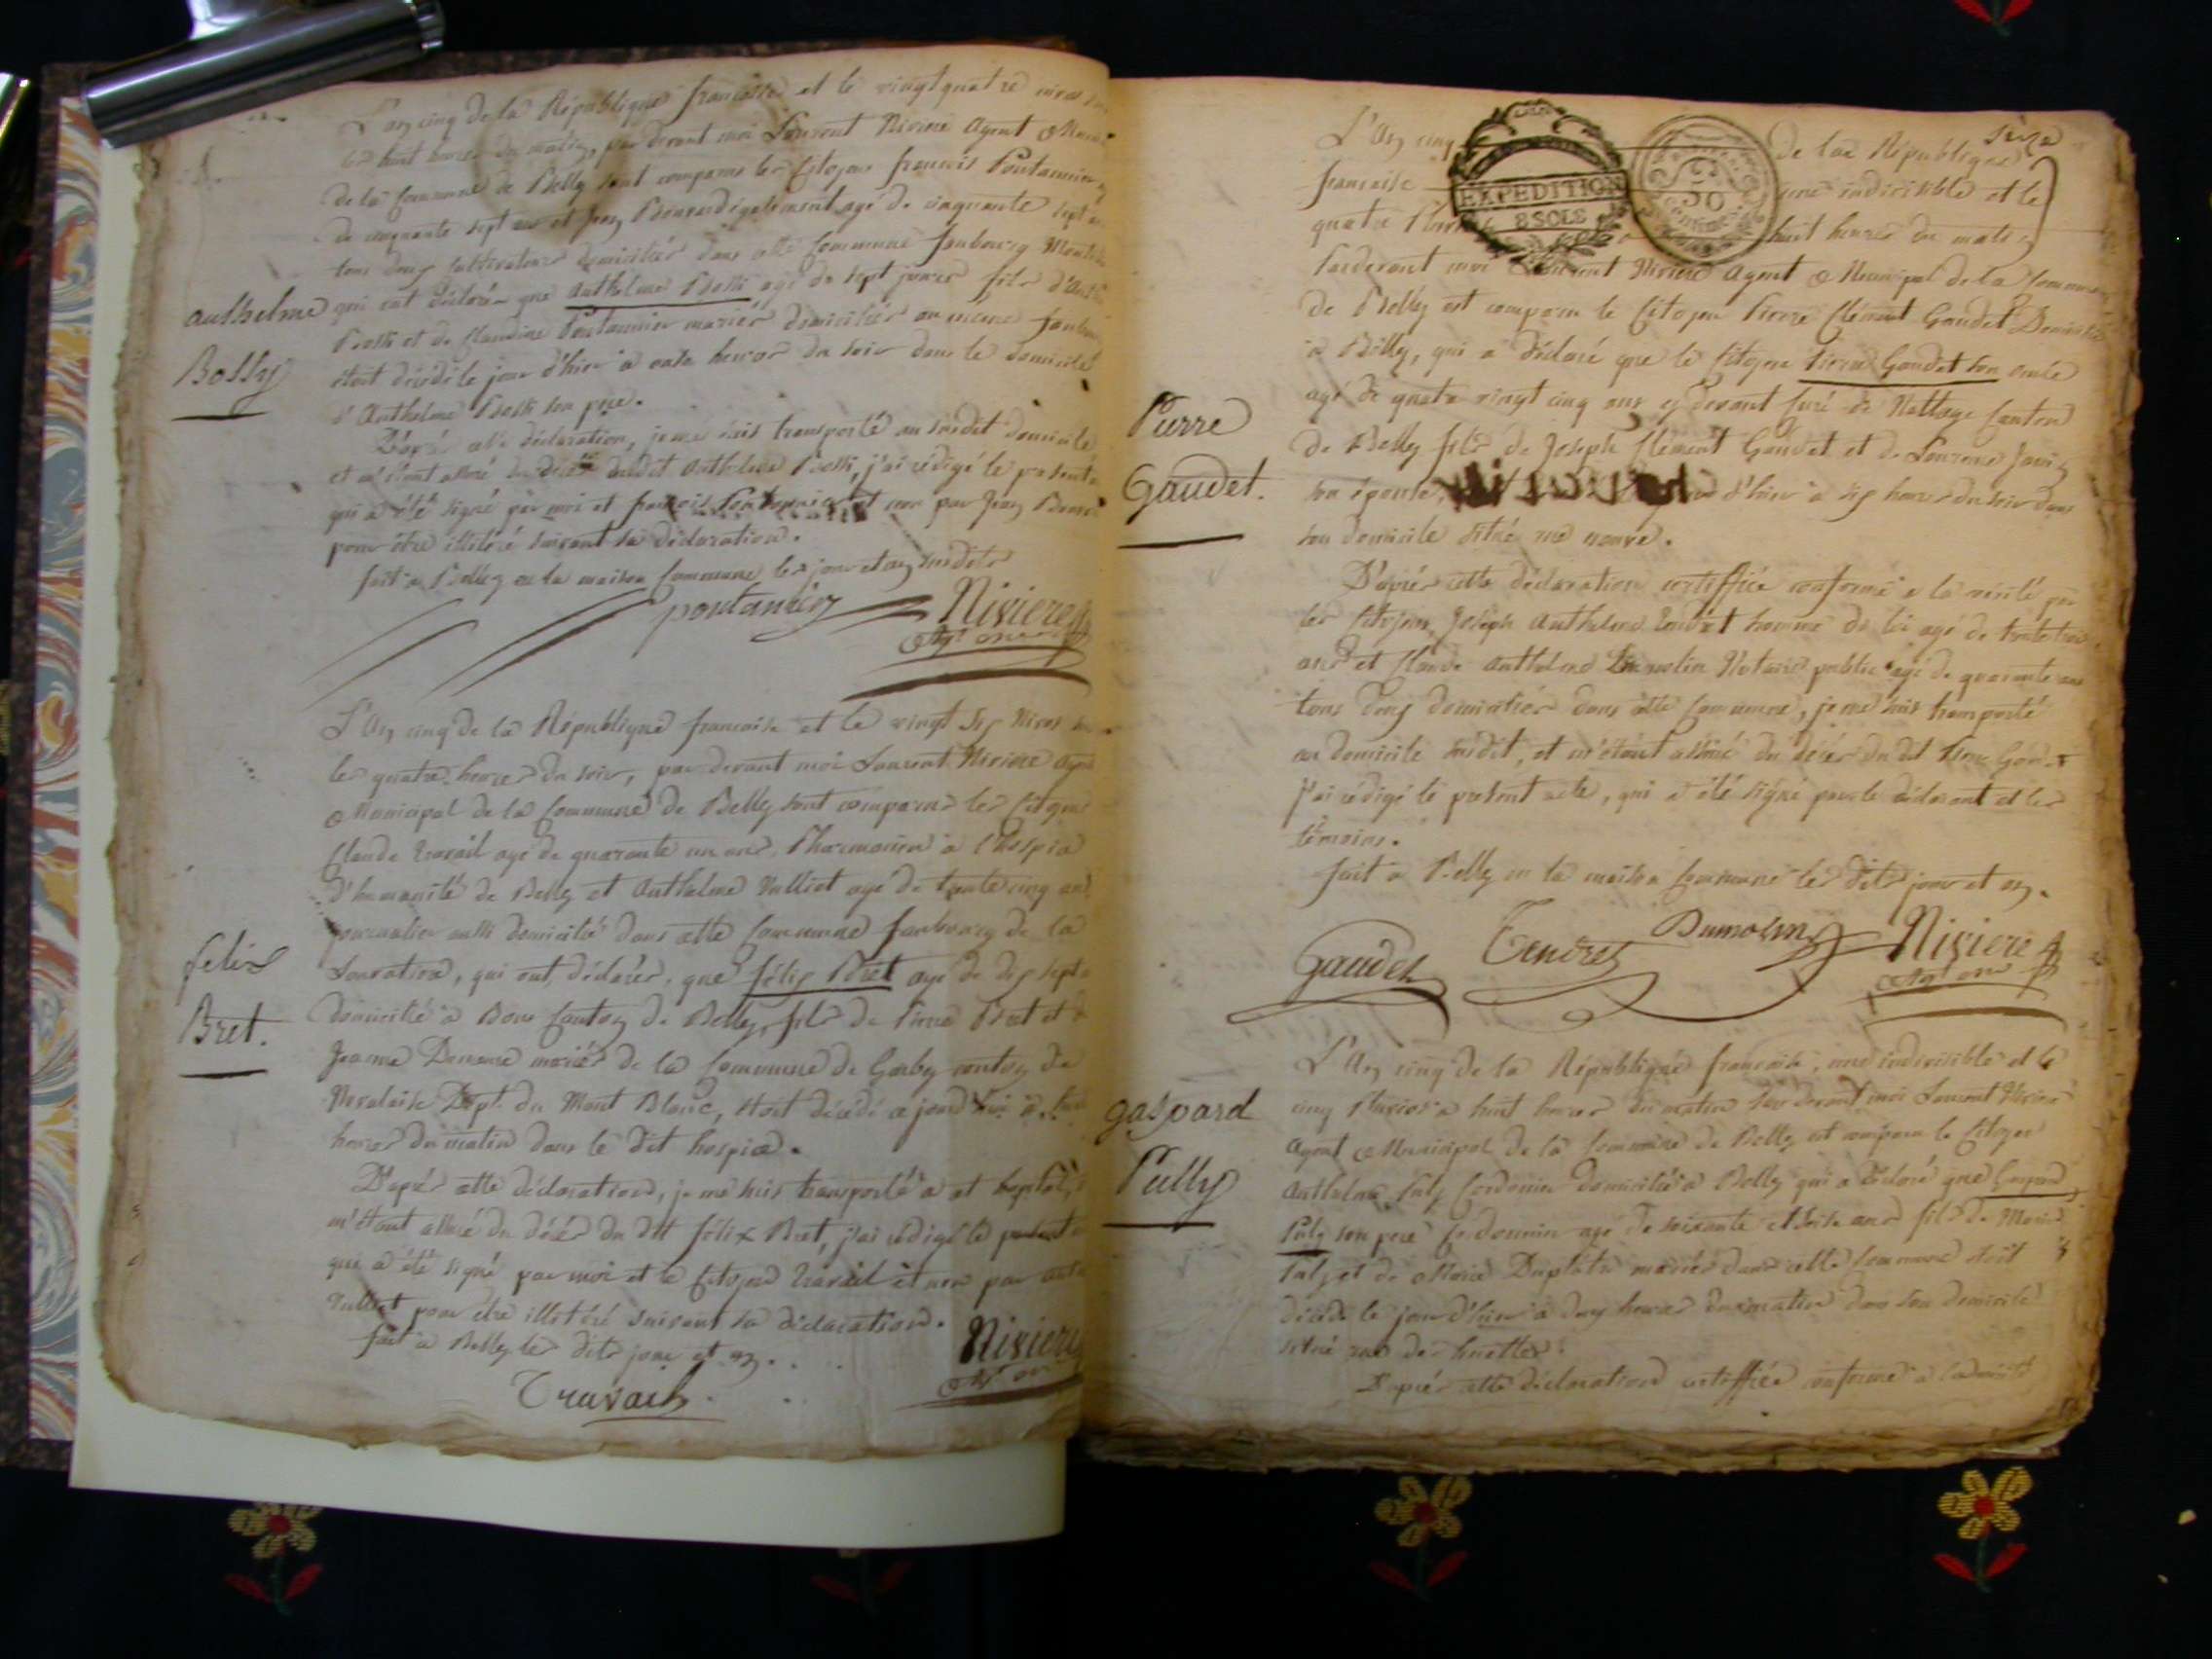 L'an cinq de la République française et le vingt quatre nivos
les huit heures du matin, par devant moi Laurent Riviere Agent Muni
de la Commune de Belley sont comparus les Citoyens francois Pontannier
de cinquante sept ans et Jean également agé de cinquante sept
tous deux Cultivateurs domiciliés dans cette Commune faubourg
qui ont déclarés que Anthelme Bossi agé de sept jours fils d'Anth
Bossi et de Claudine Pontannier mariés domiciliés au même faub
étoit décédé le jour d'hier à onze heures du soir dans le domicile
d'Anthelme Bossi son père.
D'après cette déclaration, je me suis transporté au susdit domicile
et m'étant assuré du décès dudit Anthelme Bossi, j'ai rédigé le présent
qui a été signé par moi et francois Pontannier et non par Jean
pour être illitéré suivant sa déclaration.
fait à Belley en la maison Commune les jour et an susdits
pontannier Riviere
Agt mun
Anthelme
Bossy
L'An cinq de la République française et le vingt six Nivos
les quatre heures du soir, par devant moi Laurent Riviere Agent
Municipal de la Commune de Belley sont comparus les Citoyens
Claude Travail agé de quarante un ans, Pharmacien à l'hospice
d'humanité de Belley et Anthelme Rulliet agé de trente cinq ans
journalier aussi domicilié dans cette Commune faubourg de la
qui ont déclarés, que félix Bret agé de dix sept
domicilié à Bons Canton de Belley, fils de Pierre Bret et d
Jeanne mariés de la Commune de Gerbex canton de
Novalaise Dept. du Mont Blanc, étoit décédé ce jourd'hui à
heures du matin dans le dit hospice.
D'après cette déclaration, je me suis transporté à cet hopital,
m'étant assuré du décès du dit félix Bret, j'ai rédigé le présent
qui a été signé par moi et le Citoyen Travail et non par
Rulliet pour être illitéré suivant sa déclaration.
fait à Belley les dits jour et an.
Travail Riviere
Agt
felix
Bret.
seize
L'An cinq de la République
française une indivisible et le
quatre huit heures du matin
Pardevant moi Laurent Riviere Agent Municipal de la Commune
de Belley est comparu le Citoyen Pierre Clément Gaudet Domicilié
à Belley, qui a déclaré que le Citoyen Pierre Gaudet son oncle
agé de quatre vingt cinq ans cy devant Curé de Nattage Canton
de Belley fils de Joseph Clément Gaudet et de Laurence
son épouse, d'hier à six heures du soir dans
son domicile situé rue neuve.
D'après cette déclaration certiffiée conforme à la vérité par
les Citoyens Joseph Anthelme Tendret homme de loi agé de trente trois
ans et Claude Anthelme Dumolin Notaire public agé de quarante ans
tous deux domiciliés dans cette Commune, je me suis transporté
au domicile susdit, et m'étant assuré du décès du dit Pierre Gaudet
j'ai rédigé le présent acte, qui a été signé par le déclarant et les
témoins.
fait à Belley en la maison Commune les dits jour et an.
Gaudet Tendret Dumolin Riviere
Agt mu
EXPEDITION
8 SOLS
50
Pierre
Gaudet.
L'An cinq de la République française, une indivisible et le
cinq Pluviose à huit heures du matin Par devant moi Laurent Riviere
Agent Municipal de la Commune de Belley est comparu le Citoyen
Anthelme Puly Cordonnier domicilié à Belley qui a déclaré que Gaspard
Puly son père Cordonnier agé de soixante et seize ans fils de
Puly et de Marie mariés dans cette Commune étoit
décédé le jour d'hier à deux heures du matin dans son domicile
situé rue des huettes.
D'après cette déclaration certiffiée conforme à la vérité
gaspard
Pully